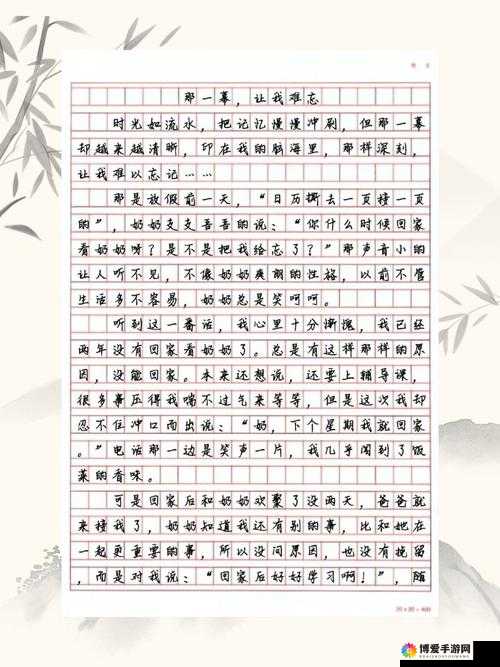 那一幕，让我难忘
时光如流水，把记忆慢慢冲刷，但那一幕
却越来越清晰，印在我的脑海里，那样深刻，
让我难以忘记……
那是放假前一天，“日历撕去一页撞一页
的”，奶奶支支吾吾的说：“你什么时候回家
看奶奶呀？是不是把我给忘了？”那声音小的
让人听不见，不像奶奶爽朗的性格，以前不管
生活多不容易，奶奶总是笑呵呵。
听到这一番话，我心里十分惭愧，我已经
两年没有回家看奶奶了。总是有这样那样的原
因，没能回家。本来还想说，还要上辅导课，
很多事压得我喘不过气来等等，但是这次我却
忍不住冲口而出说：“奶，下个星期我就回家
。”电话那一边是笑声一片，我几乎闻到了饭
菜的香味。
可是回家后和奶奶欢聚了没两天，爸爸就
来接我了，奶奶知道我还有别的事，比和她在
一起更重要的事，所以没问原因，也没有挽留
，而是对我说：“回家后好好学习啊！”，随
20×20=400
博爱手游网